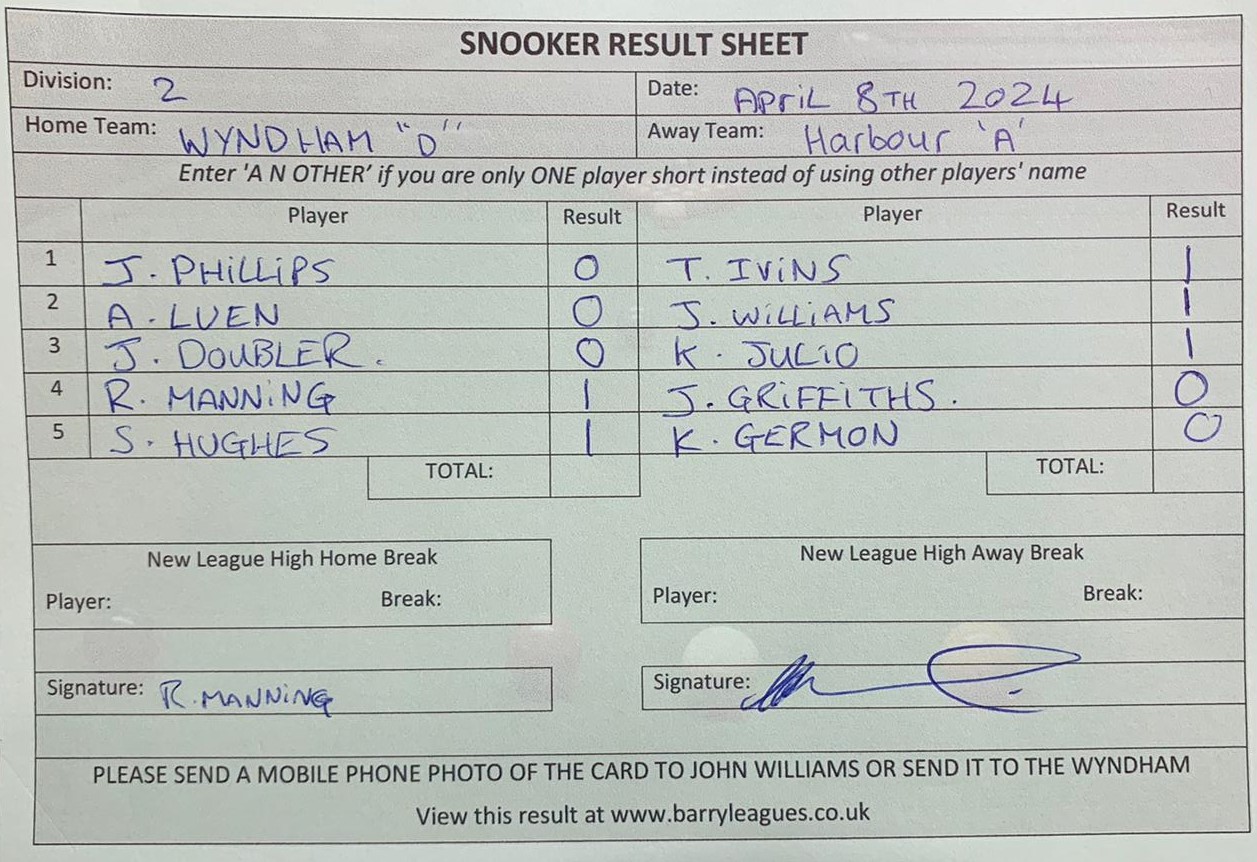 SNOOKER RESULT SHEET
Division: 2 Date: APRiL 8TH 2024
Home Team: WYNDHAM "D" Away Team: Harbour 'A'
Enter 'A N OTHER' if you are only ONE player short instead of using other players' name
Player Result Player Result
1 J. PHiLLiPS 0 T. IViNS 1
2 A. LUEN 0 J. WiLLiAMS 1
3 J. DOUBLER. 0 K. JULiO 1
4 R. MANNiNG 1 J. GRiFFiTHS. 0
5 S. HUGHES 1 K. GERMON 0
TOTAL: TOTAL:
New League High Home Break New League High Away Break
Player: Break: Player: Break:
Signature: R. MANNiNG Signature:
PLEASE SEND A MOBILE PHONE PHOTO OF THE CARD TO JOHN WILLIAMS OR SEND IT TO THE WYNDHAM
View this result at www.barryleagues.co.uk